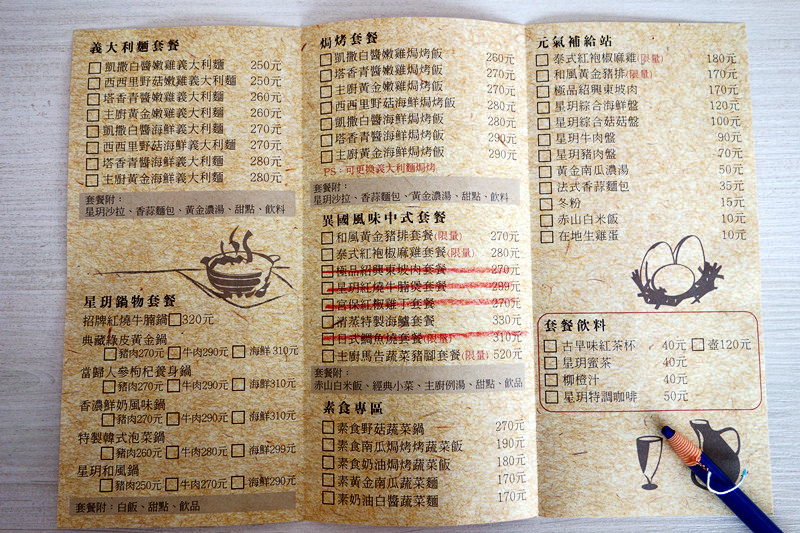 義大利麵套餐
凱撒白醬嫩雞義大利麵 250元
西西里野菇嫩雞義大利麵 250元
塔香青醬嫩雞義大利麵 260元
主廚黃金嫩雞義大利麵 260元
凱撒白醬海鮮義大利麵 270元
西西里野菇海鮮義大利麵 270元
塔香青醬海鮮義大利麵 280元
主廚黃金海鮮義大利麵 280元
套餐附：
星玥沙拉、香蒜麵包、黃金濃湯、甜點、飲料
星玥鍋物套餐
招牌紅燒牛腩鍋 320元
典藏綠皮黃金鍋
豬肉270元 牛肉290元 海鮮310元
當歸人參枸杞養身鍋
豬肉270元 牛肉290元 海鮮310元
香濃鮮奶風味鍋
豬肉270元 牛肉290元 海鮮310元
特製韓式泡菜鍋
豬肉260元 牛肉280元 海鮮299元
星玥和風鍋
豬肉250元 牛肉270元 海鮮290元
套餐附：白飯、甜點、飲品
焗烤套餐
凱撒白醬嫩雞焗烤飯 260元
塔香青醬嫩雞焗烤飯 270元
主廚黃金嫩雞焗烤飯 270元
西西里野菇海鮮焗烤飯 280元
凱撒白醬海鮮焗烤飯 280元
塔香青醬海鮮焗烤飯 290元
主廚黃金海鮮焗烤飯 290元
PS：可更換義大利麵焗烤
套餐附：
星玥沙拉、香蒜麵包、黃金濃湯、甜點、飲料
異國風味中式套餐
和風黃金豬排套餐(限量) 270元
泰式紅袍椒麻雞套餐(限量) 280元
極品紹興東坡肉套餐 270元
星玥紅燒牛腩煲套餐 299元
宮保紅椒雞丁套餐 270元
清蒸特製海鱸套餐 330元
日式鯛魚燒套餐(限量) 310元
主廚馬告蔬菜豬腳套餐(限量) 520元
套餐附：
赤山白米飯、經典小菜、主廚例湯、甜點、飲品
素食專區
素食野菇蔬菜鍋 270元
素食南瓜焗烤烤蔬菜飯 190元
素食奶油焗烤蔬菜飯 180元
素黃金南瓜蔬菜麵 170元
素奶油白醬蔬菜麵 170元
元氣補給站
泰式紅袍椒麻雞(限量) 180元
和風黃金豬排(限量) 170元
極品紹興東坡肉 170元
星玥綜合海鮮盤 120元
星玥綜合菇菇盤 100元
星玥牛肉盤 90元
星玥豬肉盤 70元
黃金南瓜濃湯 50元
法式香蒜麵包 35元
冬粉 15元
赤山白米飯 10元
在地生雞蛋 10元
套餐飲料
古早味紅茶杯 40元 壺120元
星玥蜜茶 40元
柳橙汁 40元
星玥特調咖啡 50元